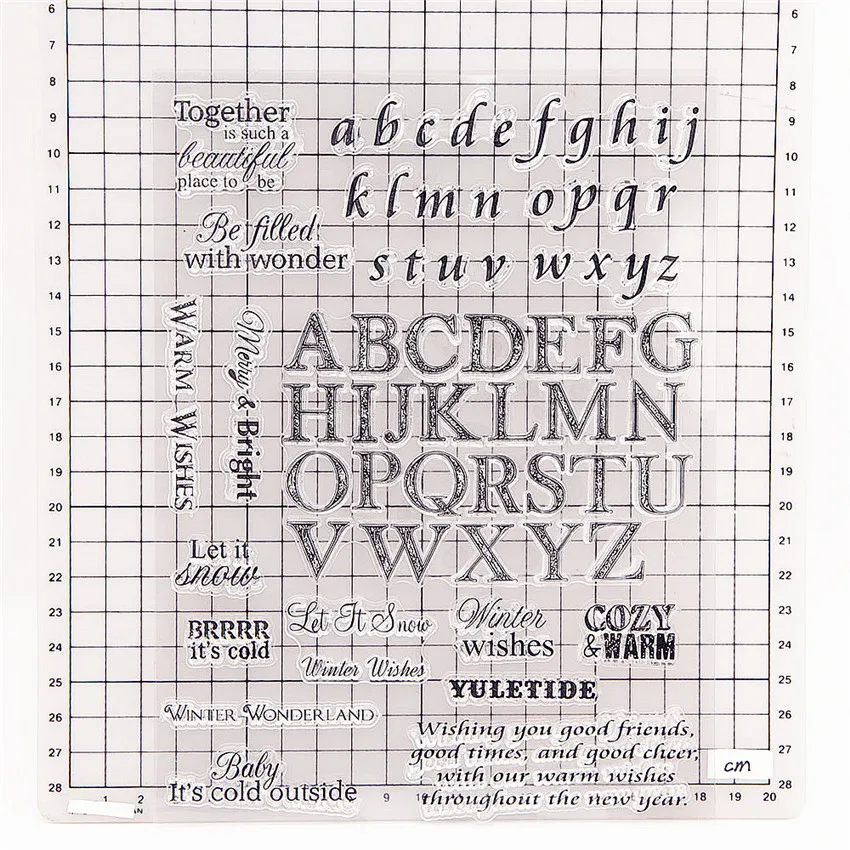 6 6
7 7
8 8
9 9
10 10
11 11
12 12
13 13
14 14
15 15
16 16
17 17
18 18
19 19
20 20
21 21
22 22
23 23
24 24
25 25
26 26
27 27
28 28
Together
is such a
beautiful
place to be
Be filled
with wonder
a b c d e f g h i j
k l m n o p q r
s t u v w x y z
WARM WISHES
Merry & Bright
ABCDEFG
HIJKLMN
OPQRSTU
VWXYZ
Let it
snow
BRRRR
it's cold
Let It Snow
Winter Wishes
Winter
wishes
COZY
& WARM
YULETIDE
WINTER WONDERLAND
Baby
It's cold outside
Wishing you good friends,
good times, and good cheer,
with our warm wishes
throughout the new year.
cm
1 2 9 18 19 20